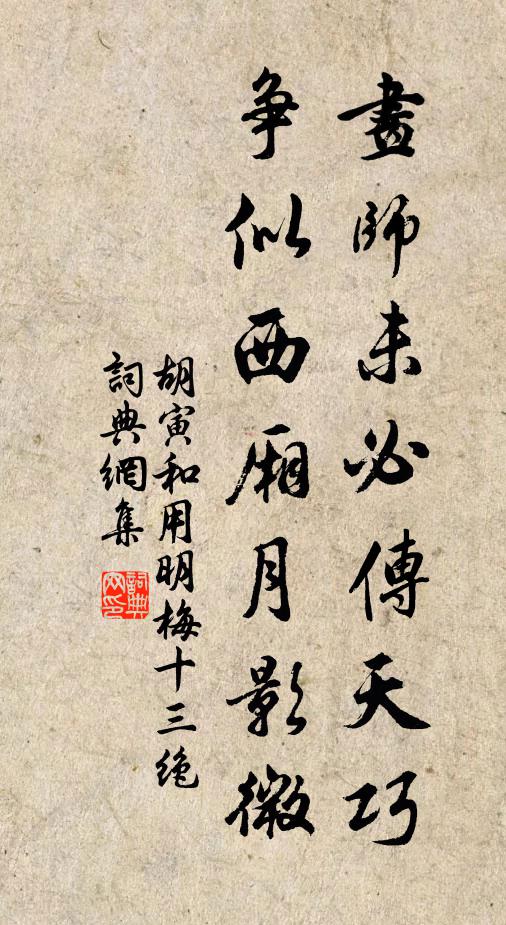 畫師未必傳天巧
争似西廂月影微
胡寅和用明梅十三絶
詞典網集
詞典网印